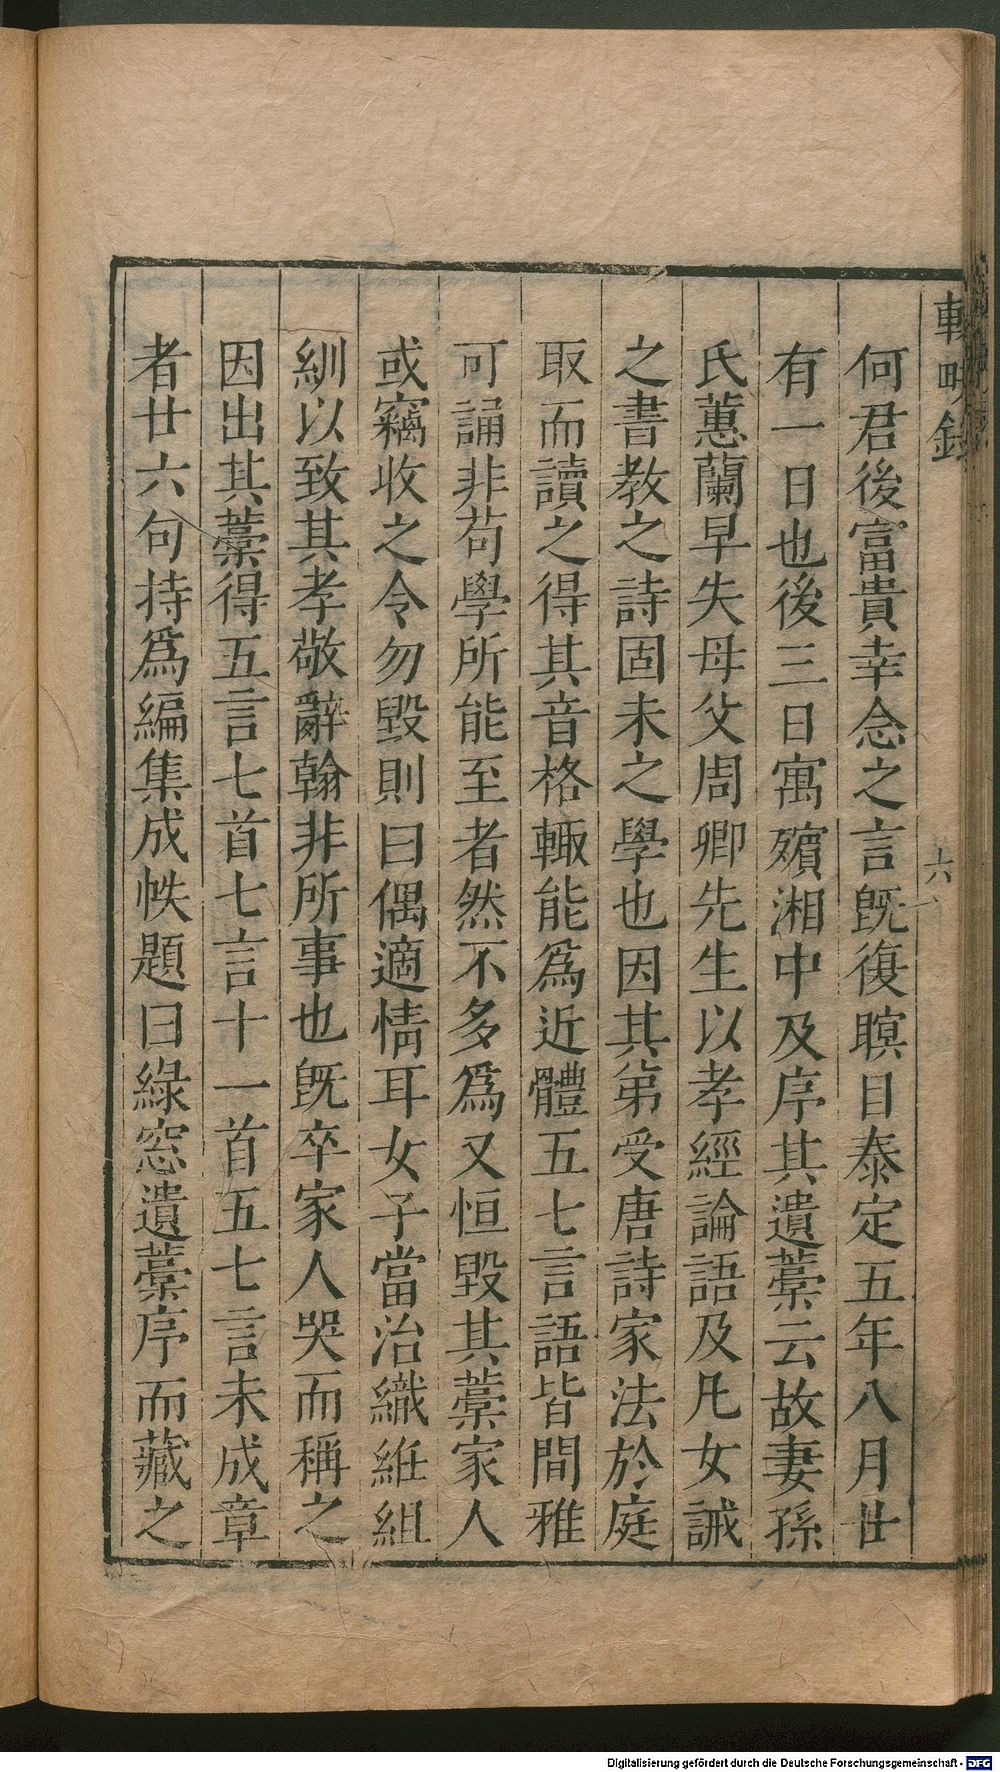 輟畊錄
六
何君後富貴幸念之言旣復瞑目泰定五年八月廿
有一日也後三日寓殯湘中及序其遺藁云故妻孫
氏蕙蘭早失母父周卿先生以孝經論語及凡女誡
之書敎之詩固未之學也因其第受唐詩家法於庭
取而讀之得其音格輙能爲近體五七言語皆間雅
可誦非苟學所能至者然不多爲又恒毀其藁家人
或竊收之令勿毀則曰偶適情耳女子當治織維組
紃以致其孝敬辭翰非所事也旣卒家人哭而稱之
因出其藁得五言七首七言十一首五七言未成章
者廿六句持爲編集成帙題曰綠窓遺藁序而藏之
Digitalisierung gefördert durch die Deutsche Forschungsgemeinschaft - DFG